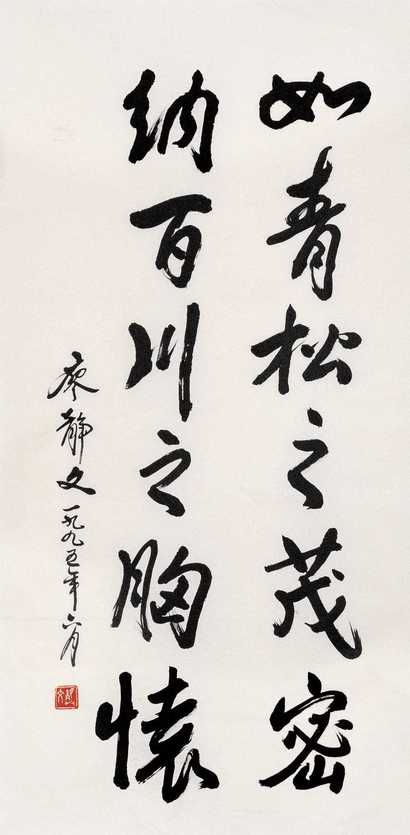 如青松之茂密
纳百川之胸怀
廖静文一九九五年六月